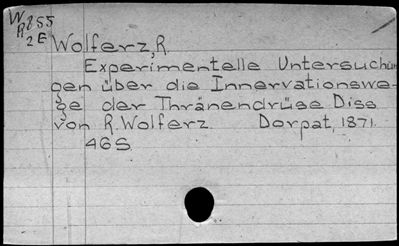 W855
R2E
Wolferz, R.
Experimentelle Untersuchun
gen über die Innervationswe-
ge der Thränendrüse Diss
von R. Wolferz Dorpat, 1871.
46S